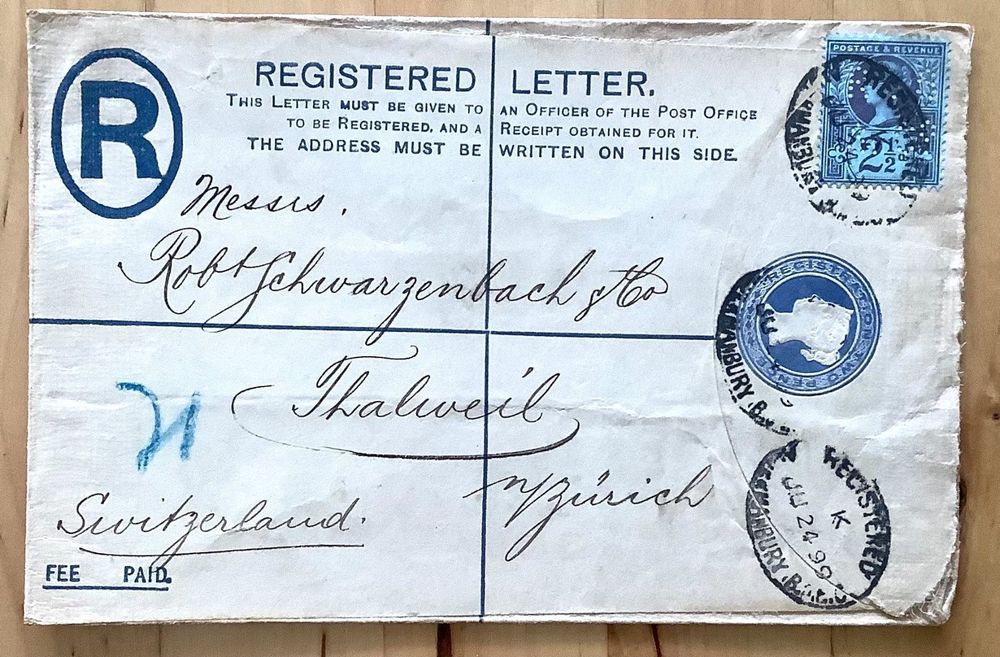 R
REGISTERED LETTER.
THIS LETTER MUST BE GIVEN TO AN OFFICER OF THE POST OFFICE
TO BE REGISTERED, AND A RECEIPT OBTAINED FOR IT.
THE ADDRESS MUST BE WRITTEN ON THIS SIDE.
POSTAGE & REVENUE
2½
Messrs.
Robt Schwarzenbach & Co
Thalweil
n/Zürich
Switzerland.
FEE PAID.
REGISTRATION TWO PENCE
REGISTERED
K
JU 24 99